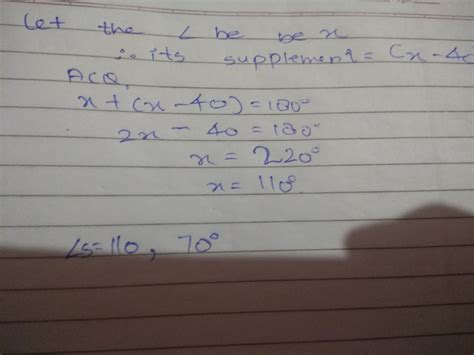 Let the ∠ be be x
∴ its supplement = (x - 40
ACQ,
x + (x - 40) = 180°
2x - 40 = 180°
x = 220°
x = 110°
∠s = 110, 70°